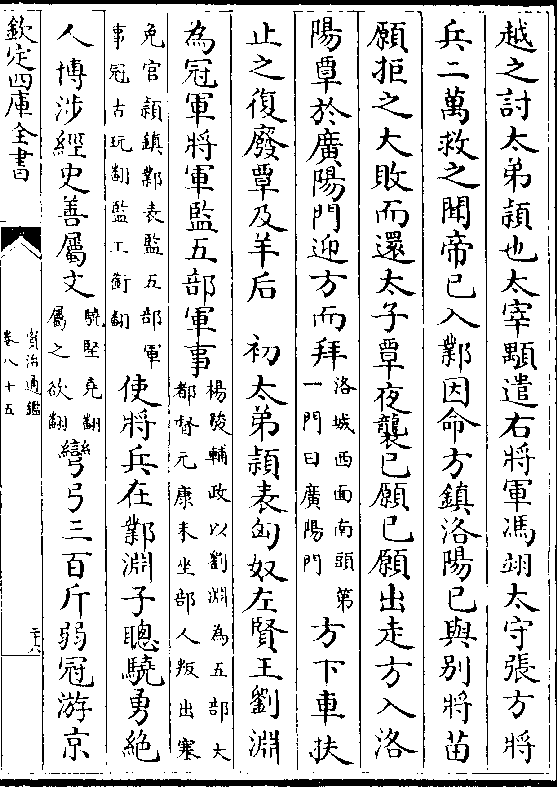 越之討太弟穎也太宰顒遣右將軍馮翊太守張方將
兵二萬救之聞帝已入鄴因命方鎮洛陽巳與别將苗
願拒之大敗而還太子覃夜襲巳願巳願出走方入洛
陽覃於廣陽門迎方而拜洛城西面南頭第一門曰廣陽門方下車扶
止之復廢覃及羊后　初太弟穎表匈奴左賢王劉淵
為冠軍將軍監五部軍事楊駿輔政以劉淵為五部大都督元康末坐部人叛出塞
免官穎鎮鄴表監五部軍事冠古玩翻監工衘翻使將兵在鄴淵子聰驍勇絶
人博涉經史善屬文驍堅堯翻屬之欲翻彎弓三百斤弱冠游京
欽定四庫全書
資治通鑑
卷八十五